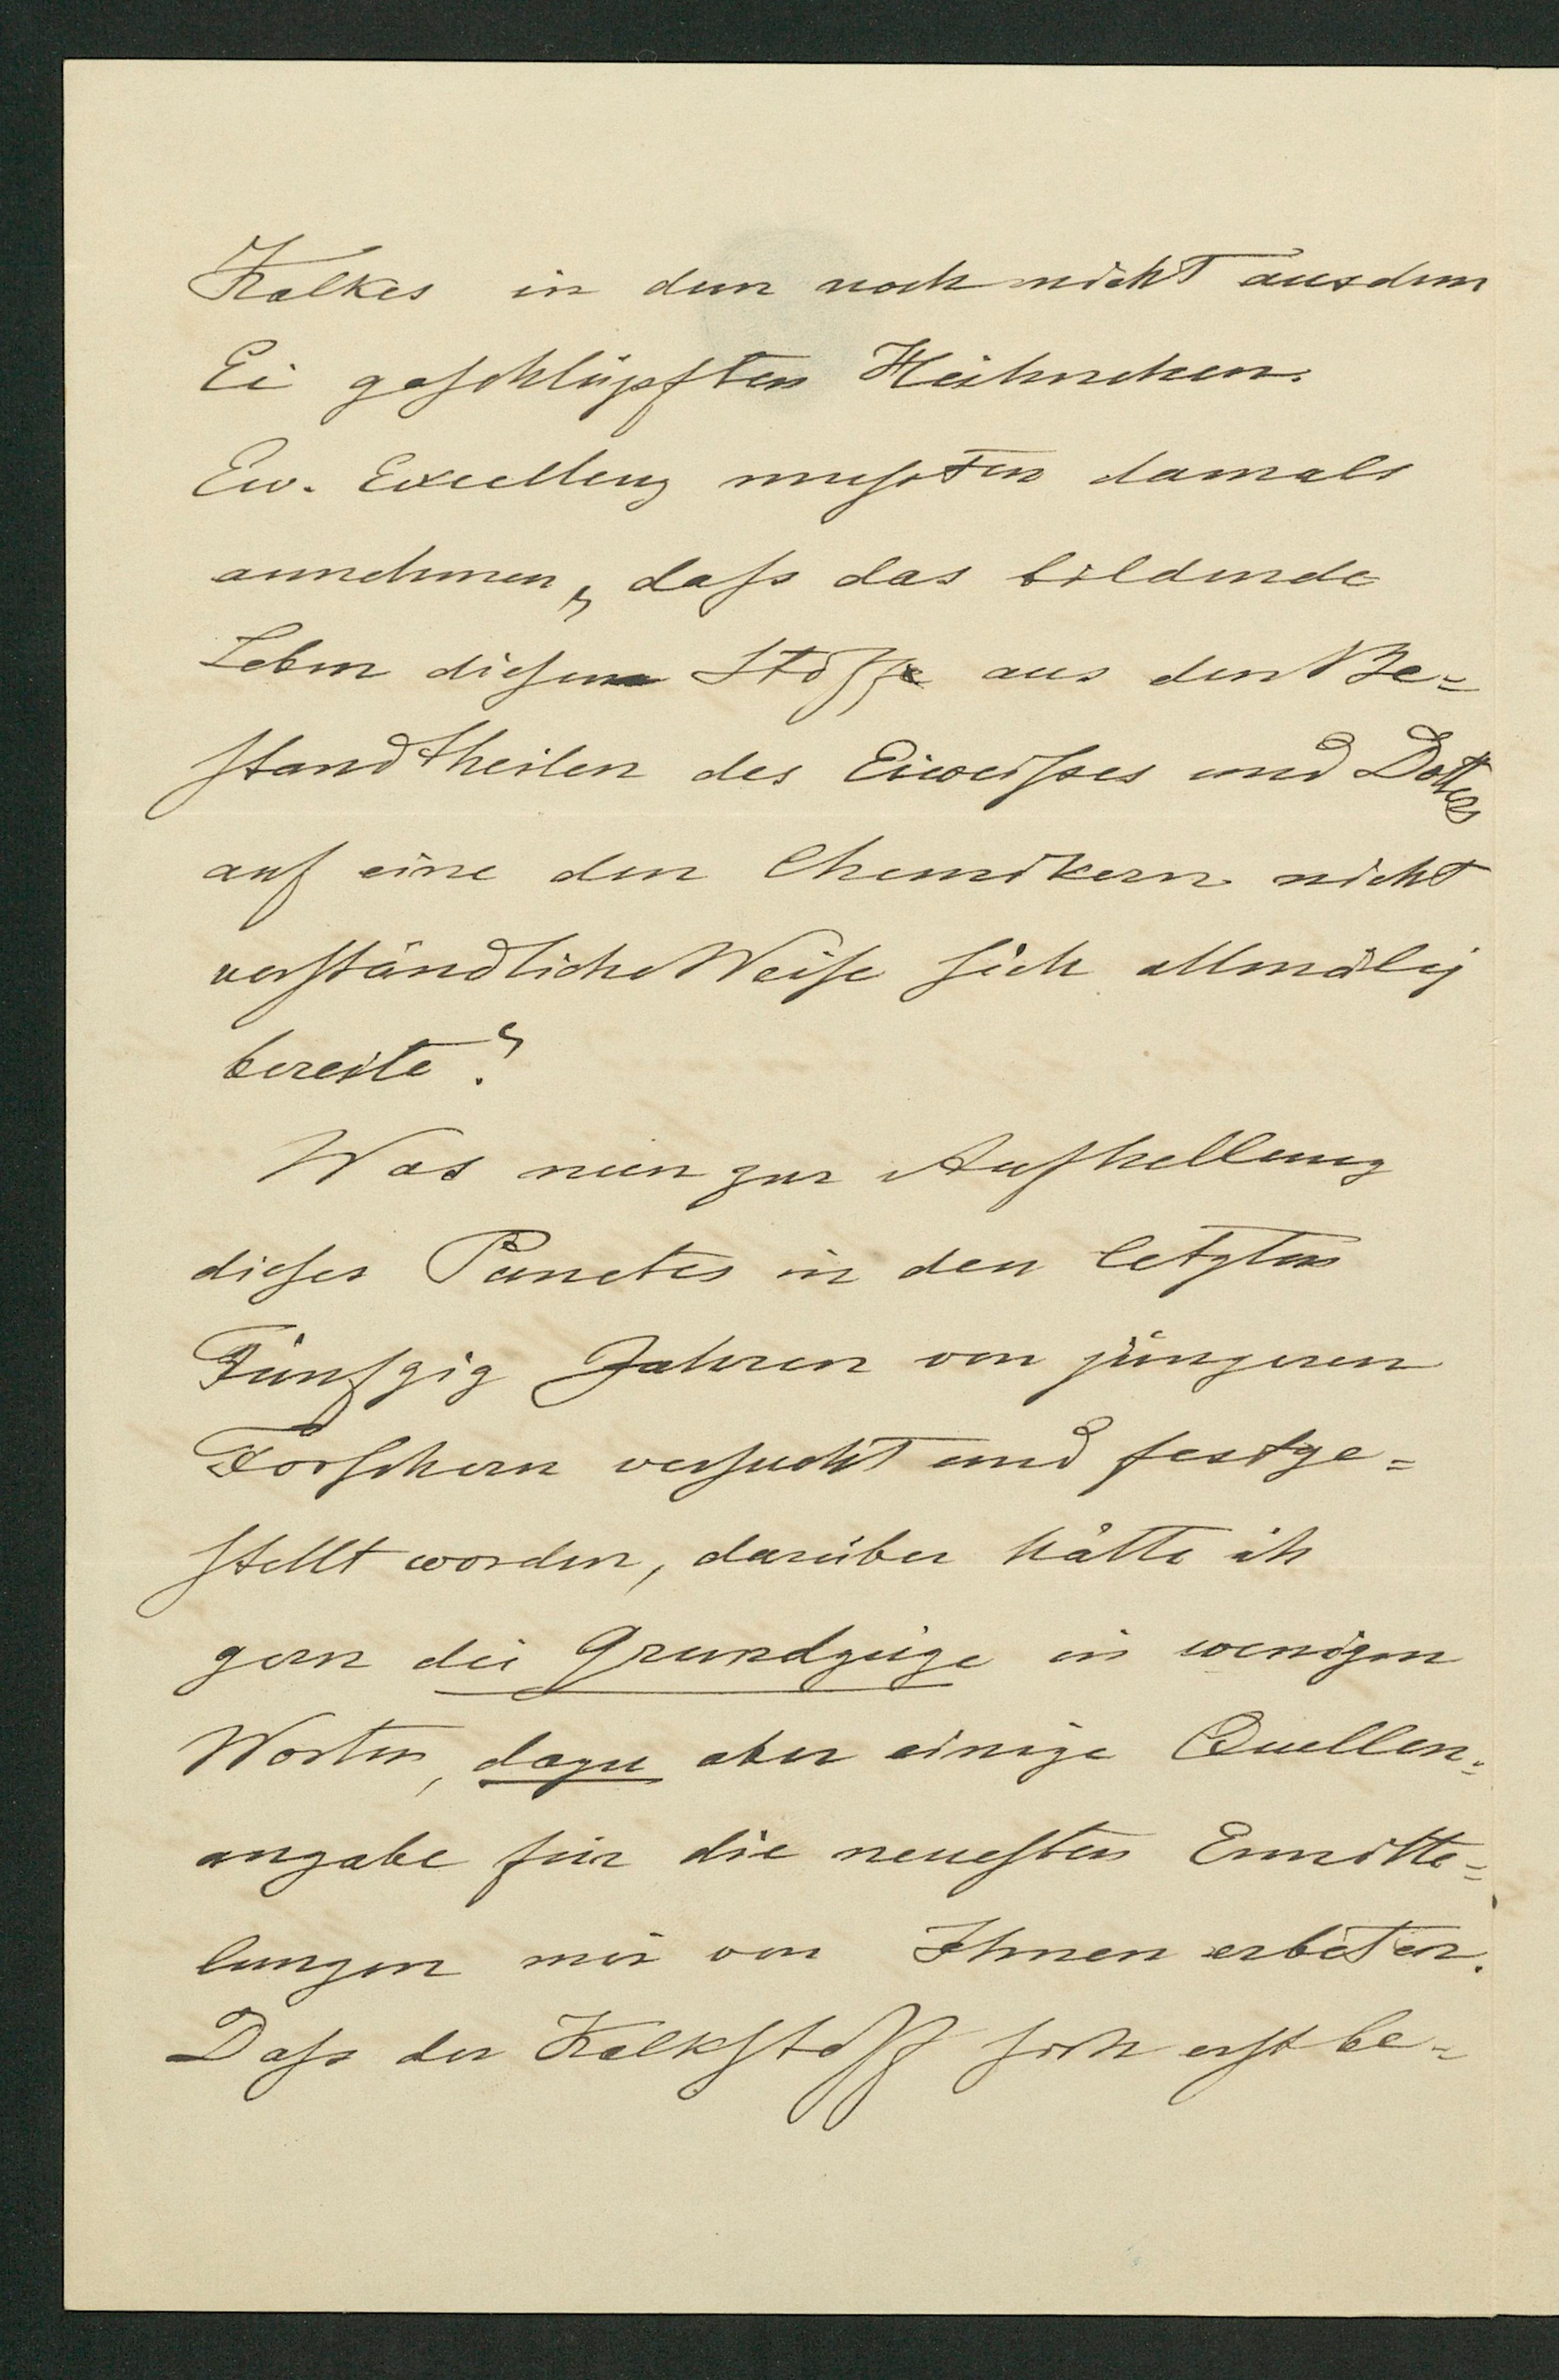 Kalkes in dem noch nicht aus dem
Ei geschlüpften Hühnchen.
Ew. Excellenz mussten damals
annehmen, „dass das bildende
Leben diesen Stoff aus den Be=
standtheilen des Eiweisses und Dotters
auf eine den Chemikern nicht
verständliche Weise sich allmälig
bereite.“
Was nun zur Aufhellung
dieses Punctes in den letzten
Fünfzig Jahren von jüngeren
Forschern versucht und festge=
stellt worden, darüber hätte ich
gern die Grundzüge in wenigen
Worten, dazu aber einige Quellen=
angabe für die neuesten Ermitte=
lungen mir von Ihnen erbeten.
Dass der Kalkstoff sich erst be=